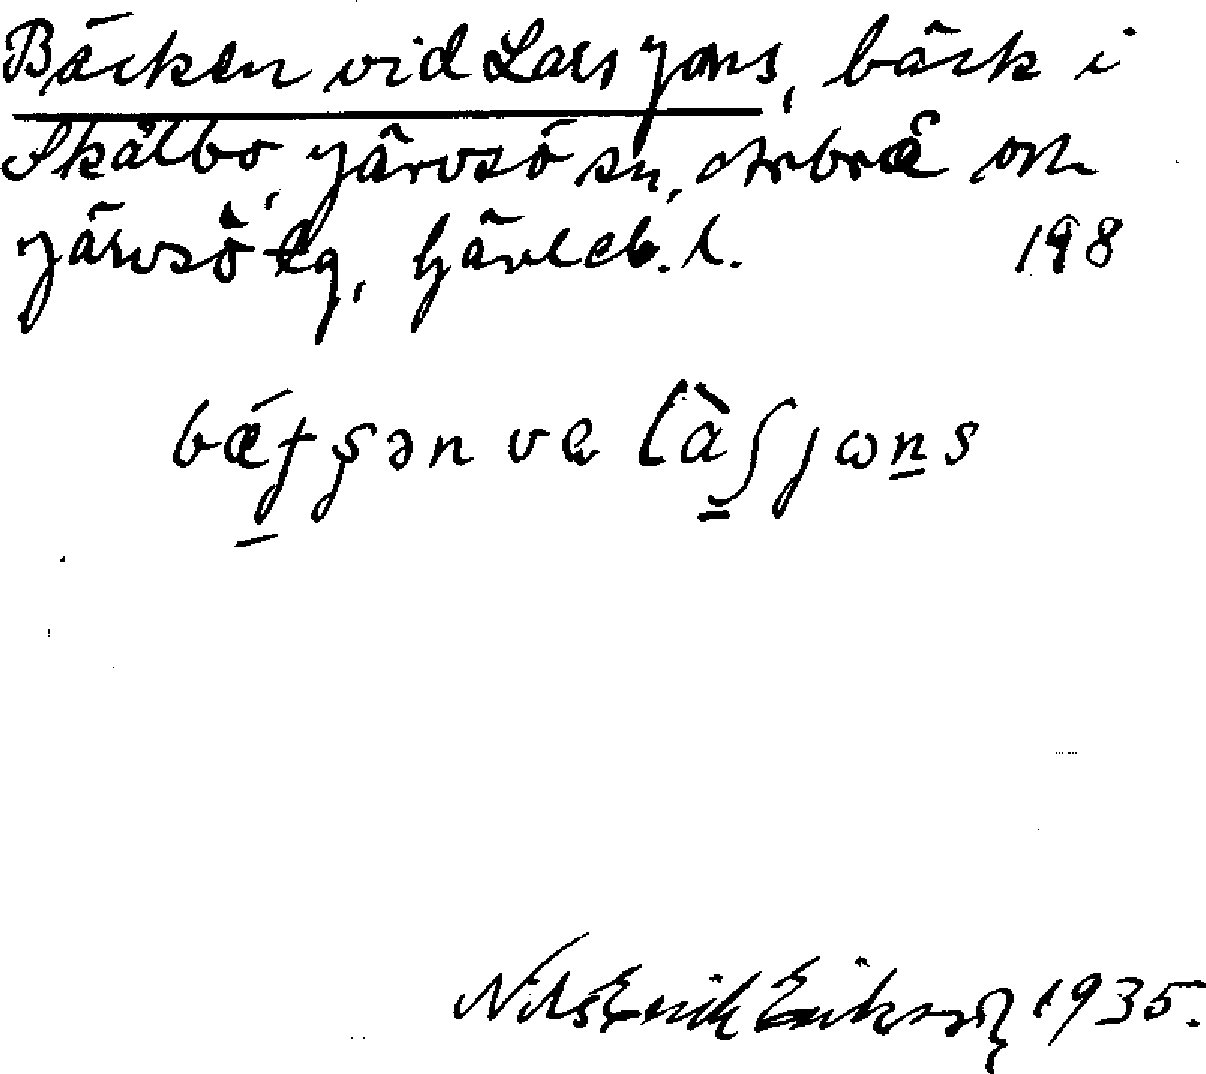 Bäcken vid Lars Jons, bäck i
Skålbo, Järvsö sn, Arbrå och
Järvsö tg, Gävleb. l. 198
bǽfʂən ve là∫jωns
Nils Erik Eriksson 1935.